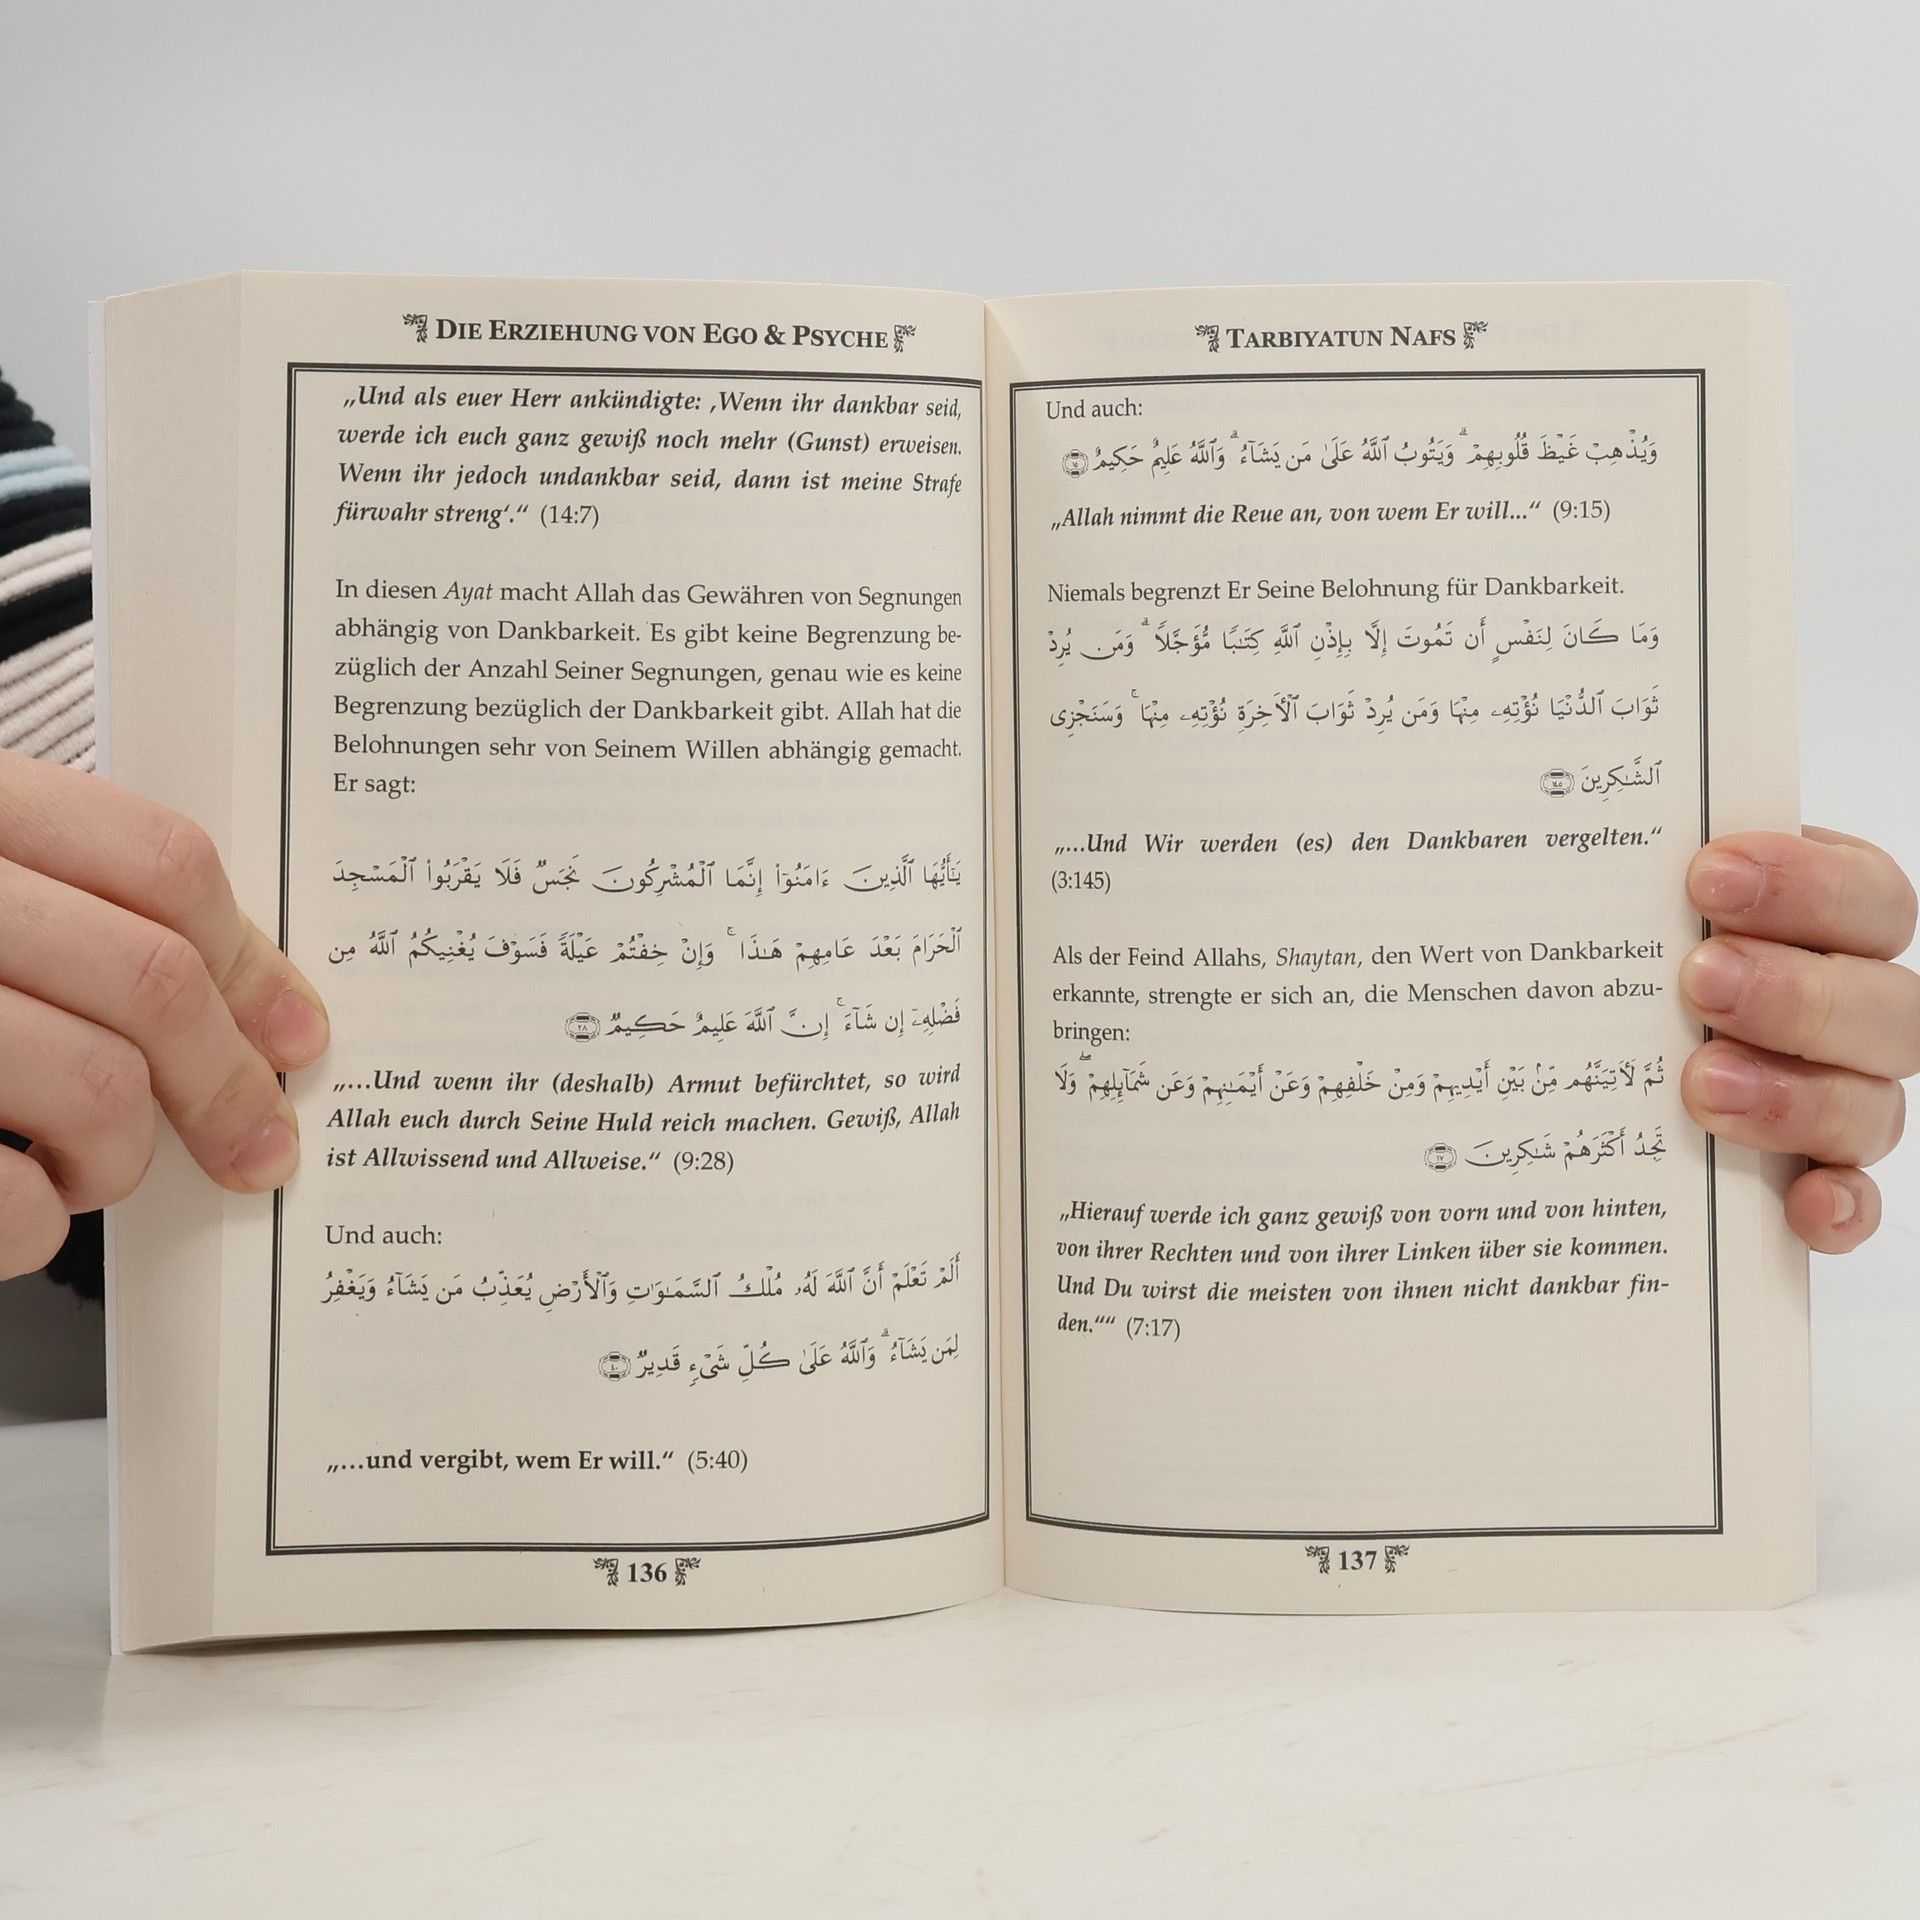 DIE ERZIEHUNG VON EGO & PSYCHE
„Und als euer Herr ankündigte: ‚Wenn ihr dankbar seid,
werde ich euch ganz gewiß noch mehr (Gunst) erweisen.
Wenn ihr jedoch undankbar seid, dann ist meine Strafe
fürwahr streng‘.“ (14:7)
In diesen Ayat macht Allah das Gewähren von Segnungen
abhängig von Dankbarkeit. Es gibt keine Begrenzung be-
züglich der Anzahl Seiner Segnungen, genau wie es keine
Begrenzung bezüglich der Dankbarkeit gibt. Allah hat die
Belohnungen sehr von Seinem Willen abhängig gemacht.
Er sagt:
يَـٰٓأَيُّهَا ٱلَّذِينَ ءَامَنُوٓا۟ إِنَّمَا ٱلْمُشْرِكُونَ نَجَسٌ فَلَا يَقْرَبُوا۟ ٱلْمَسْجِدَ
ٱلْحَرَامَ بَعْدَ عَامِهِمْ هَـٰذَا ۚ وَإِنْ خِفْتُمْ عَيْلَةً فَسَوْفَ يُغْنِيكُمُ ٱللَّهُ مِن
فَضْلِهِۦٓ إِن شَآءَ ۚ إِنَّ ٱللَّهَ عَلِيمٌ حَكِيمٌ ٢٨
„…Und wenn ihr (deshalb) Armut befürchtet, so wird
Allah euch durch Seine Huld reich machen. Gewiß, Allah
ist Allwissend und Allweise.“ (9:28)
Und auch:
أَلَمْ تَعْلَمْ أَنَّ ٱللَّهَ لَهُۥ مُلْكُ ٱلسَّمَـٰوَٰتِ وَٱلْأَرْضِ يُعَذِّبُ مَن يَشَآءُ وَيَغْفِرُ
لِمَن يَشَآءُ ۗ وَٱللَّهُ عَلَىٰ كُلِّ شَىْءٍ قَدِيرٌ ٤٠
„…und vergibt, wem Er will.“ (5:40)
136
TARBIYATUN NAFS
Und auch:
وَيُذْهِبْ غَيْظَ قُلُوبِهِمْ ۗ وَيَتُوبُ ٱللَّهُ عَلَىٰ مَن يَشَآءُ ۗ وَٱللَّهُ عَلِيمٌ حَكِيمٌ ١٥
„Allah nimmt die Reue an, von wem Er will...“ (9:15)
Niemals begrenzt Er Seine Belohnung für Dankbarkeit.
وَمَا كَانَ لِنَفْسٍ أَن تَمُوتَ إِلَّا بِإِذْنِ ٱللَّهِ كِتَـٰبًا مُّؤَجَّلًا ۗ وَمَن يُرِدْ
ثَوَابَ ٱلدُّنْيَا نُؤْتِهِۦ مِنْهَا وَمَن يُرِدْ ثَوَابَ ٱلْـَٔاخِرَةِ نُؤْتِهِۦ مِنْهَا ۚ وَسَنَجْزِى
ٱلشَّـٰكِرِينَ ١٤٥
„…Und Wir werden (es) den Dankbaren vergelten.“
(3:145)
Als der Feind Allahs, Shaytan, den Wert von Dankbarkeit
erkannte, strengte er sich an, die Menschen davon abzu-
bringen:
ثُمَّ لَـَٔاتِيَنَّهُم مِّنۢ بَيْنِ أَيْدِيهِمْ وَمِنْ خَلْفِهِمْ وَعَنْ أَيْمَـٰنِهِمْ وَعَن شَمَآئِلِهِمْ ۖ وَلَا
تَجِدُ أَكْثَرَهُمْ شَـٰكِرِينَ ١٧
„Hierauf werde ich ganz gewiß von vorn und von hinten,
von ihrer Rechten und von ihrer Linken über sie kommen.
Und Du wirst die meisten von ihnen nicht dankbar fin-
den.““ (7:17)
137